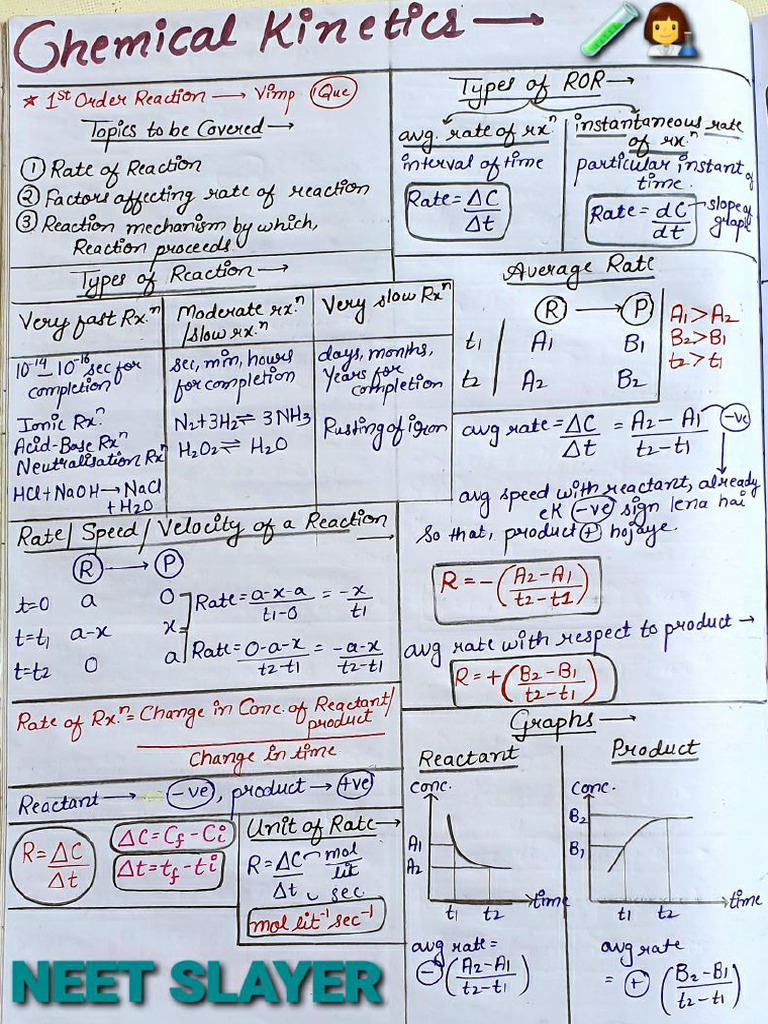 Chemical Kinetics →
* 1st Order Reaction → Vimp 1Que
Topics to be Covered →
① Rate of Reaction
② Factors affecting rate of reaction
③ Reaction mechanism by which,
Reaction proceeds
Types of ROR →
avg. rate of rxⁿ
interval of time
Rate = ΔC/Δt
instantaneous rate
of rxⁿ
particular instant of
time.
Rate = dC/dt → slope of
graph
Types of Reaction →
Very fast Rx.ⁿ
10⁻¹⁴ – 10⁻¹⁶ sec for
completion
Ionic Rx.ⁿ
Acid-Base Rxⁿ
Neutralisation Rxⁿ
HCl + NaOH → NaCl
+ H₂O
Moderate rx.ⁿ
/slow rx.ⁿ
sec, min, hours
for completion
N₂ + 3H₂ ⇌ 3NH₃
H₂O₂ ⇌ H₂O
Very slow Rxⁿ
days, months,
Years for
completion
Rusting of iron
Average Rate
R → P
t₁ A₁ B₁
t₂ A₂ B₂
A₁ > A₂
B₂ > B₁
t₂ > t₁
avg rate = ΔC/Δt = A₂ – A₁/t₂ – t₁ -ve
avg speed with reactant, already
ek -ve sign lena hai
So that, product + hojaye.
R = –(A₂ – A₁/t₂ – t1)
avg rate with respect to product →
R = +(B₂ – B₁/t₂ – t₁)
Rate / Speed / Velocity of a Reaction →
R → P
t=0 a 0
t=t₁ a-x x
t=t₂ 0 a
Rate = a-x-a/t₁-0 = -x/t₁
Rate = 0-a-x/t₂-t₁ = -a-x/t₂-t₁
Rate of Rx.ⁿ = Change in Conc. of Reactant/
product
Change in time
Reactant → -ve, product → +ve
R = ΔC/Δt
ΔC = Cf – Ci
Δt = tf – ti
Unit of Rate →
R = ΔC → mol/lit
Δt → sec.
mol lit⁻¹ sec⁻¹
Graphs →
Reactant
conc.
A₁
A₂
t₁ t₂ time
avg rate =
– (A₂ – A₁/t₂ – t₁)
Product
conc.
B₂
B₁
t₁ t₂ time
avg rate
= + (B₂ – B₁/t₂ – t₁)
NEET SLAYER